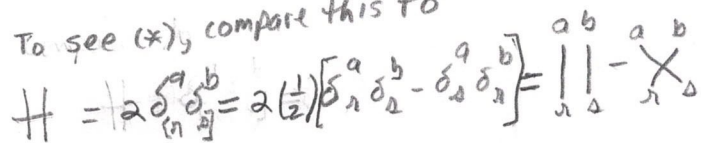 To see (*), compare this to
H = 2 δ^a_{[r} δ^b_{s]} = 2(1/2)[δ^a_r δ^b_s - δ^a_s δ^b_r] = ||^{a b}_{r s} - X^{a b}_{r s}